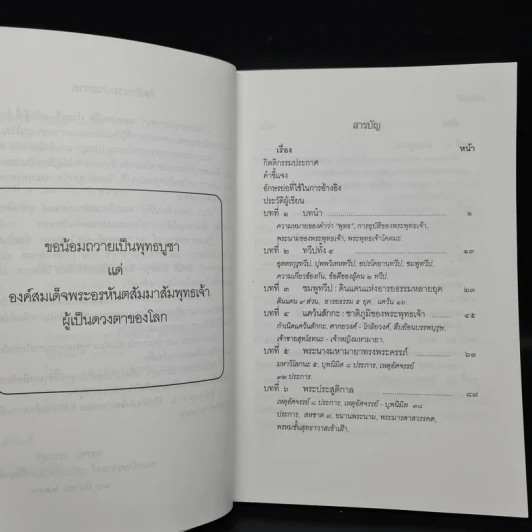 ขอน้อมถวายเป็นพุทธบูชา
แด่
องค์สมเด็จพระอรหันตสัมมาสัมพุทธเจ้า
ผู้เป็นดวงตาของโลก
สารบัญ
เรื่อง หน้า
กิตติกรรมประกาศ
คำชี้แจง
อักษรย่อที่ใช้ในการอ้างอิง
ประวัติผู้เขียน
บทที่ ๑ บทนำ ๑
ความหมายของคำว่า "พุทธ", การอุบัติของพระพุทธเจ้า,
พระนามของพระพุทธเจ้า, พระพุทธเจ้าโคตมะ.
บทที่ ๒ ทวีปทั้ง ๔ ๑๓
อุตตรกุรุทวีป, บุพพวิเทหทวีป, อปรโคยานทวีป, ชมพูทวีป,
ความเกี่ยวข้องกัน, ข้อดีของผู้คน ๒ ทวีป.
บทที่ ๓ ชมพูทวีป : ดินแดนแห่งอารยธรรมหลายยุค
ดินแดน ๙ ส่วน, อารยธรรม ๕ ยุค, แคว้น ๑๖.
บทที่ ๔ แคว้นสักกะ : ชาติภูมิของพระพุทธเจ้า ๔๕
กำเนิดแคว้นสักกะ, ศากยวงศ์ - โกลิยวงศ์, สืบย้อนบรรพบุรุษ,
เจ้าชายสุทโธทนะ - เจ้าหญิงมหามายา.
บทที่ ๕ พระนางมหามายาทรงพระครรภ์ ๖๓
มหาวิโลกนะ ๕, บุพนิมิต ๘ ประการ, เหตุอัศจรรย์
๑๒ ประการ.
บทที่ ๖ พระประสูติกาล ๘๗
เหตุอัศจรรย์ ๘ ประการ, เหตุอัศจรรย์ - บุพนิมิต ๓๘
ประการ, สหชาต ๗, ขนานพระนาม, พระมารดาสวรรคต,
พรหมชั้นสุทธาวาสเข้าเฝ้า.